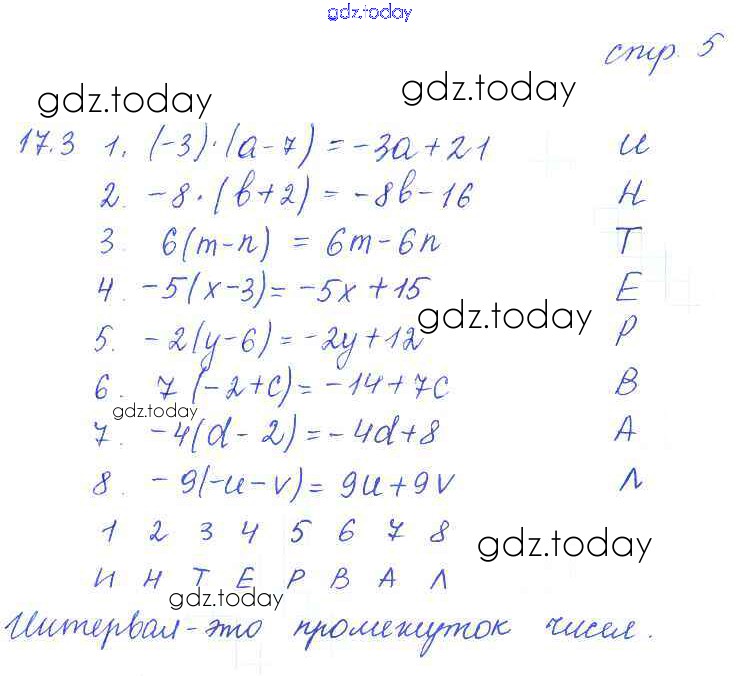 gdz.today
стр. 5
gdz.today gdz.today
17.3 1. (-3)·(a-7) = -3a+21 И
2. -8·(b+2) = -8b-16 Н
3. 6(m-n) = 6m-6n Т
4. -5(x-3) = -5x+15 Е
gdz.today
5. -2(y-6) = -2y+12 Р
6. 7(-2+c) = -14+7c В
gdz.today
7. -4(d-2) = -4d+8 А
8. -9(-u-v) = 9u+9v Л
1 2 3 4 5 6 7 8
gdz.today
И Н Т Е Р В А Л
gdz.today
Интервал - это промежуток чисел.